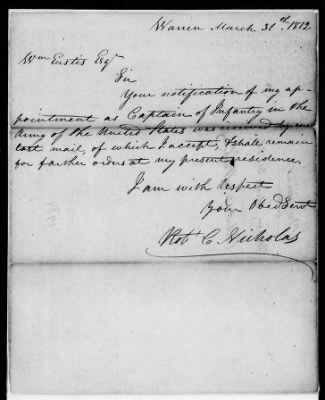 Warren March 31st. 1812
Wm Eustis Esqr
Sir
Your notification of my ap-
pointment as Captain of Infantry in the
Army of the United States was received by
last mail, of which I accept, & shall remain
for farther orders at my present residence.
I am with Respect
Your Obed Servt
Robt C Nicholas